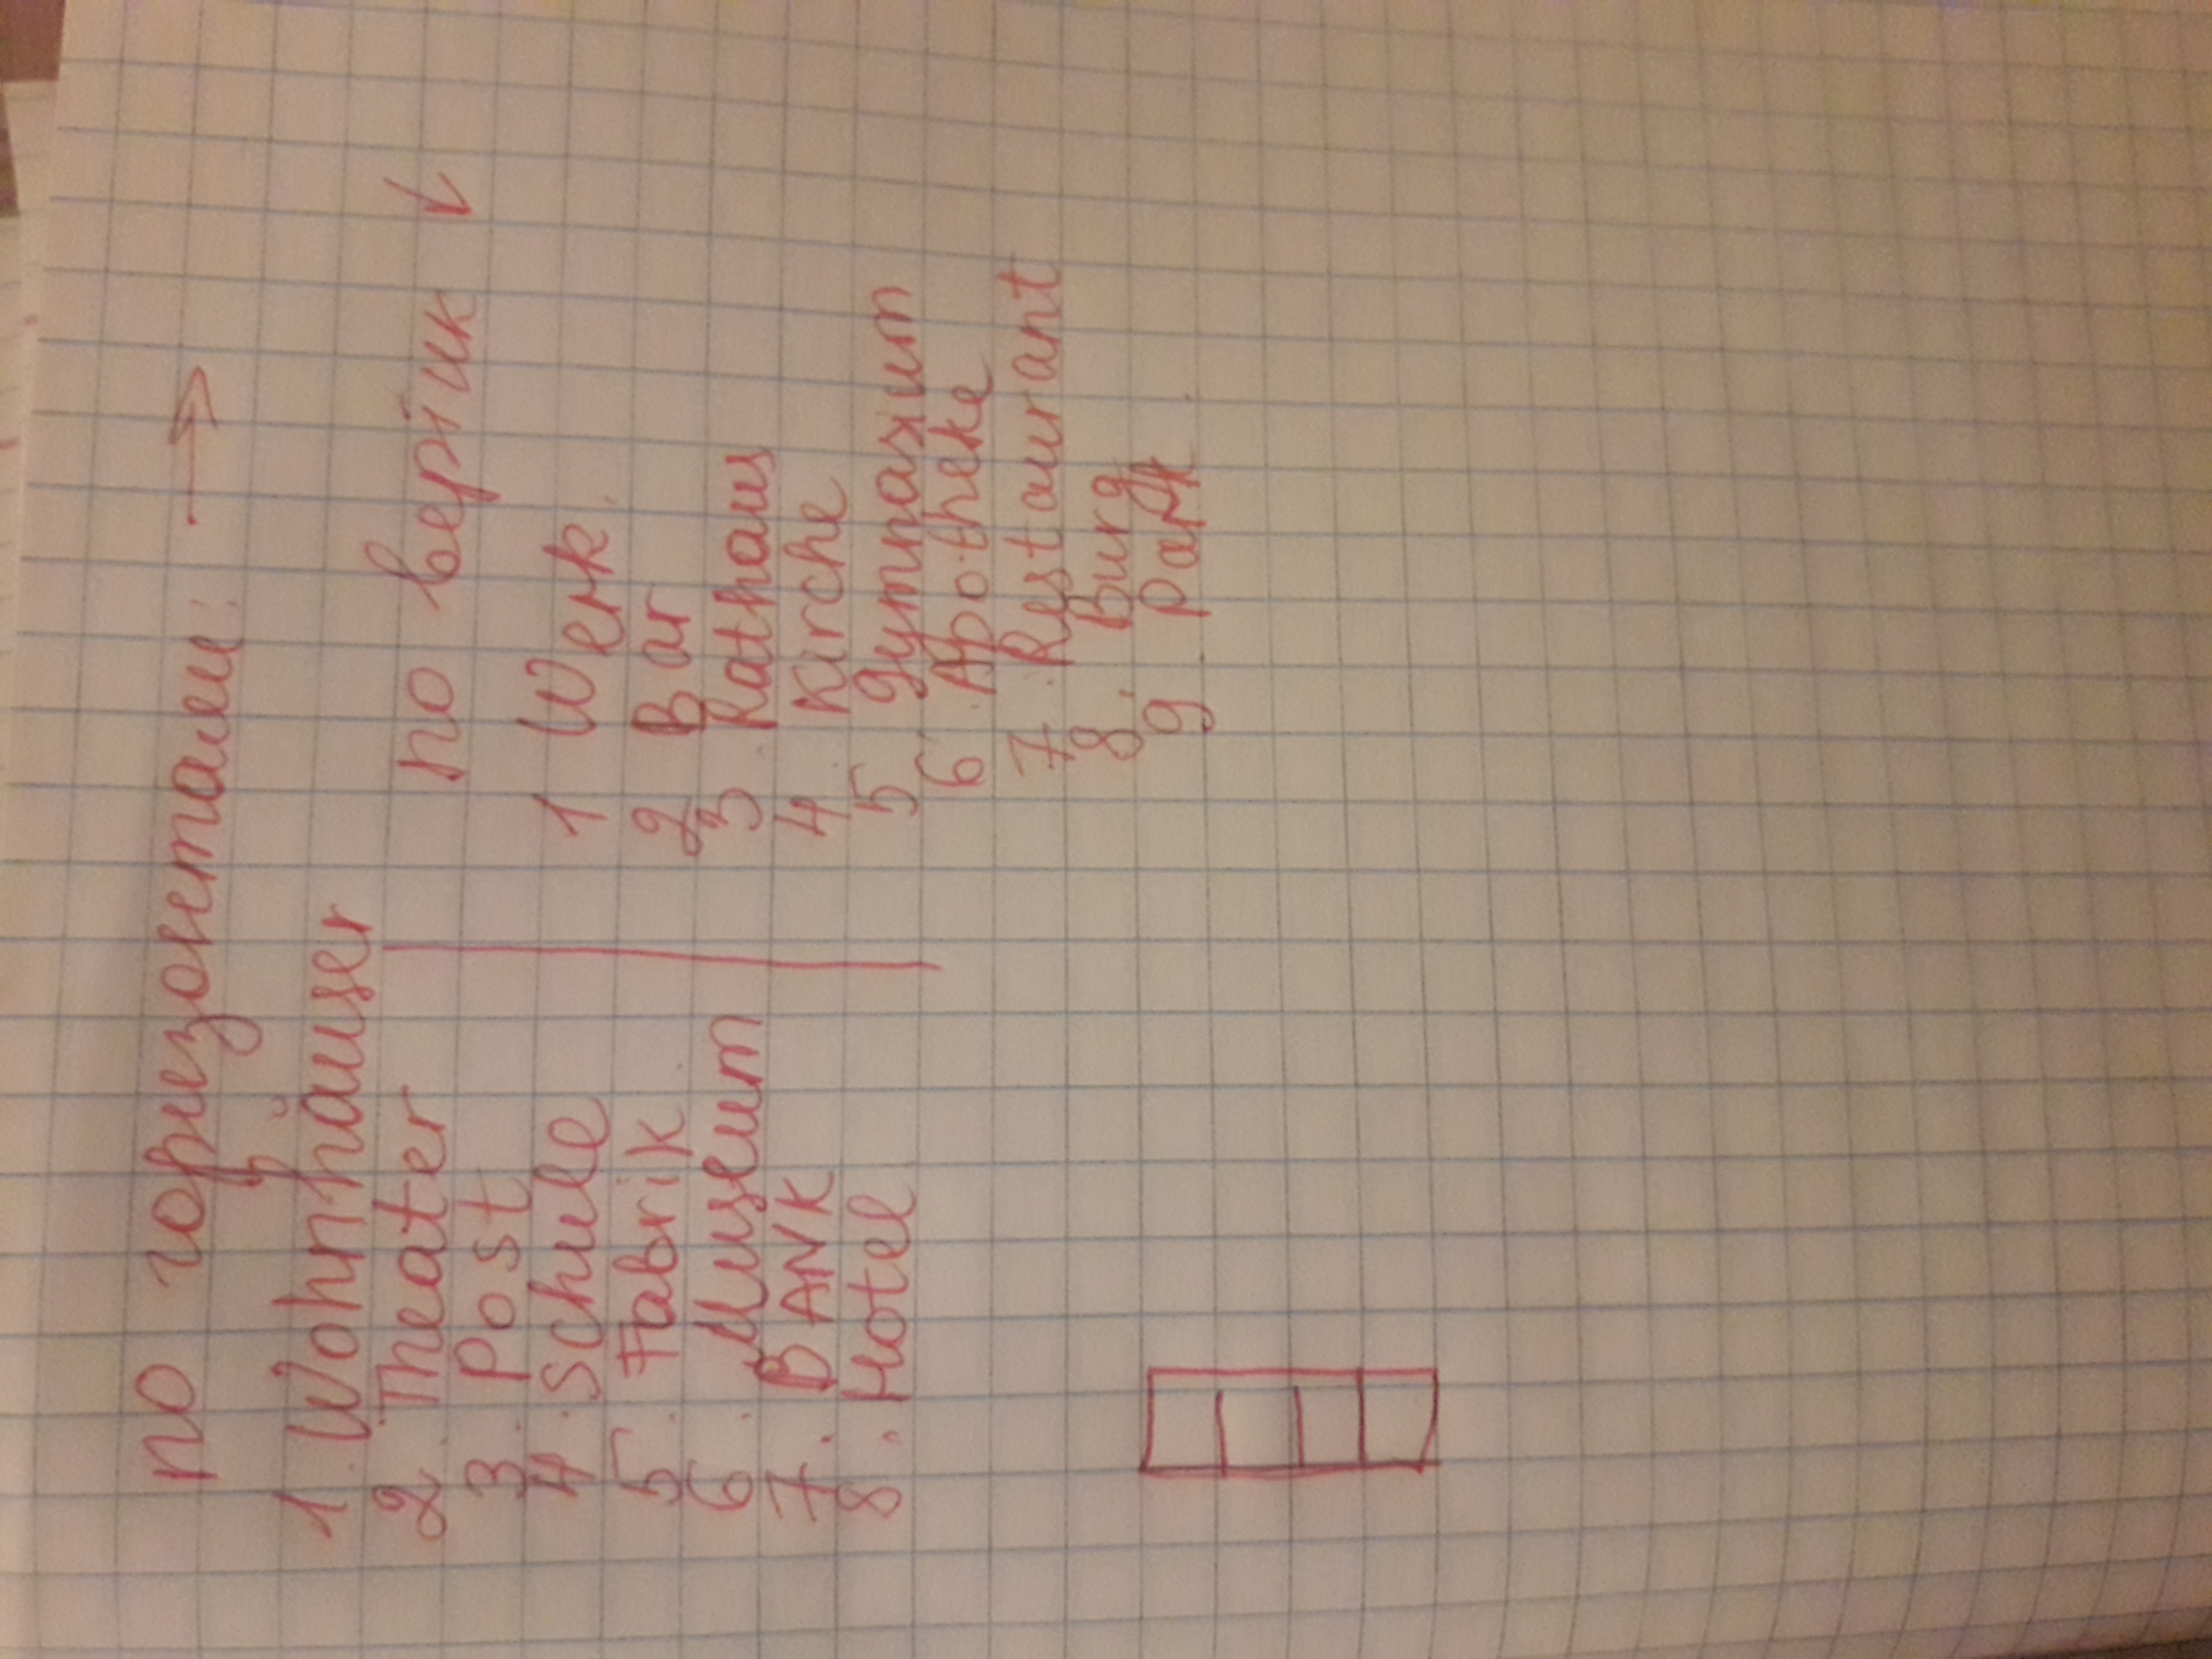 по горизонтали: →
1. Wohnhäuser
2. Theater
3. Post
4. Schule
5. Fabrik
6. Museum
7. BANK
8. Hotel
по вертик ↓
1 Werk
2 Bar
3. Rathaus
4 Kirche
5 gymnasium
6. Apotheke
7. Restaurant
8. Burg
9. Park